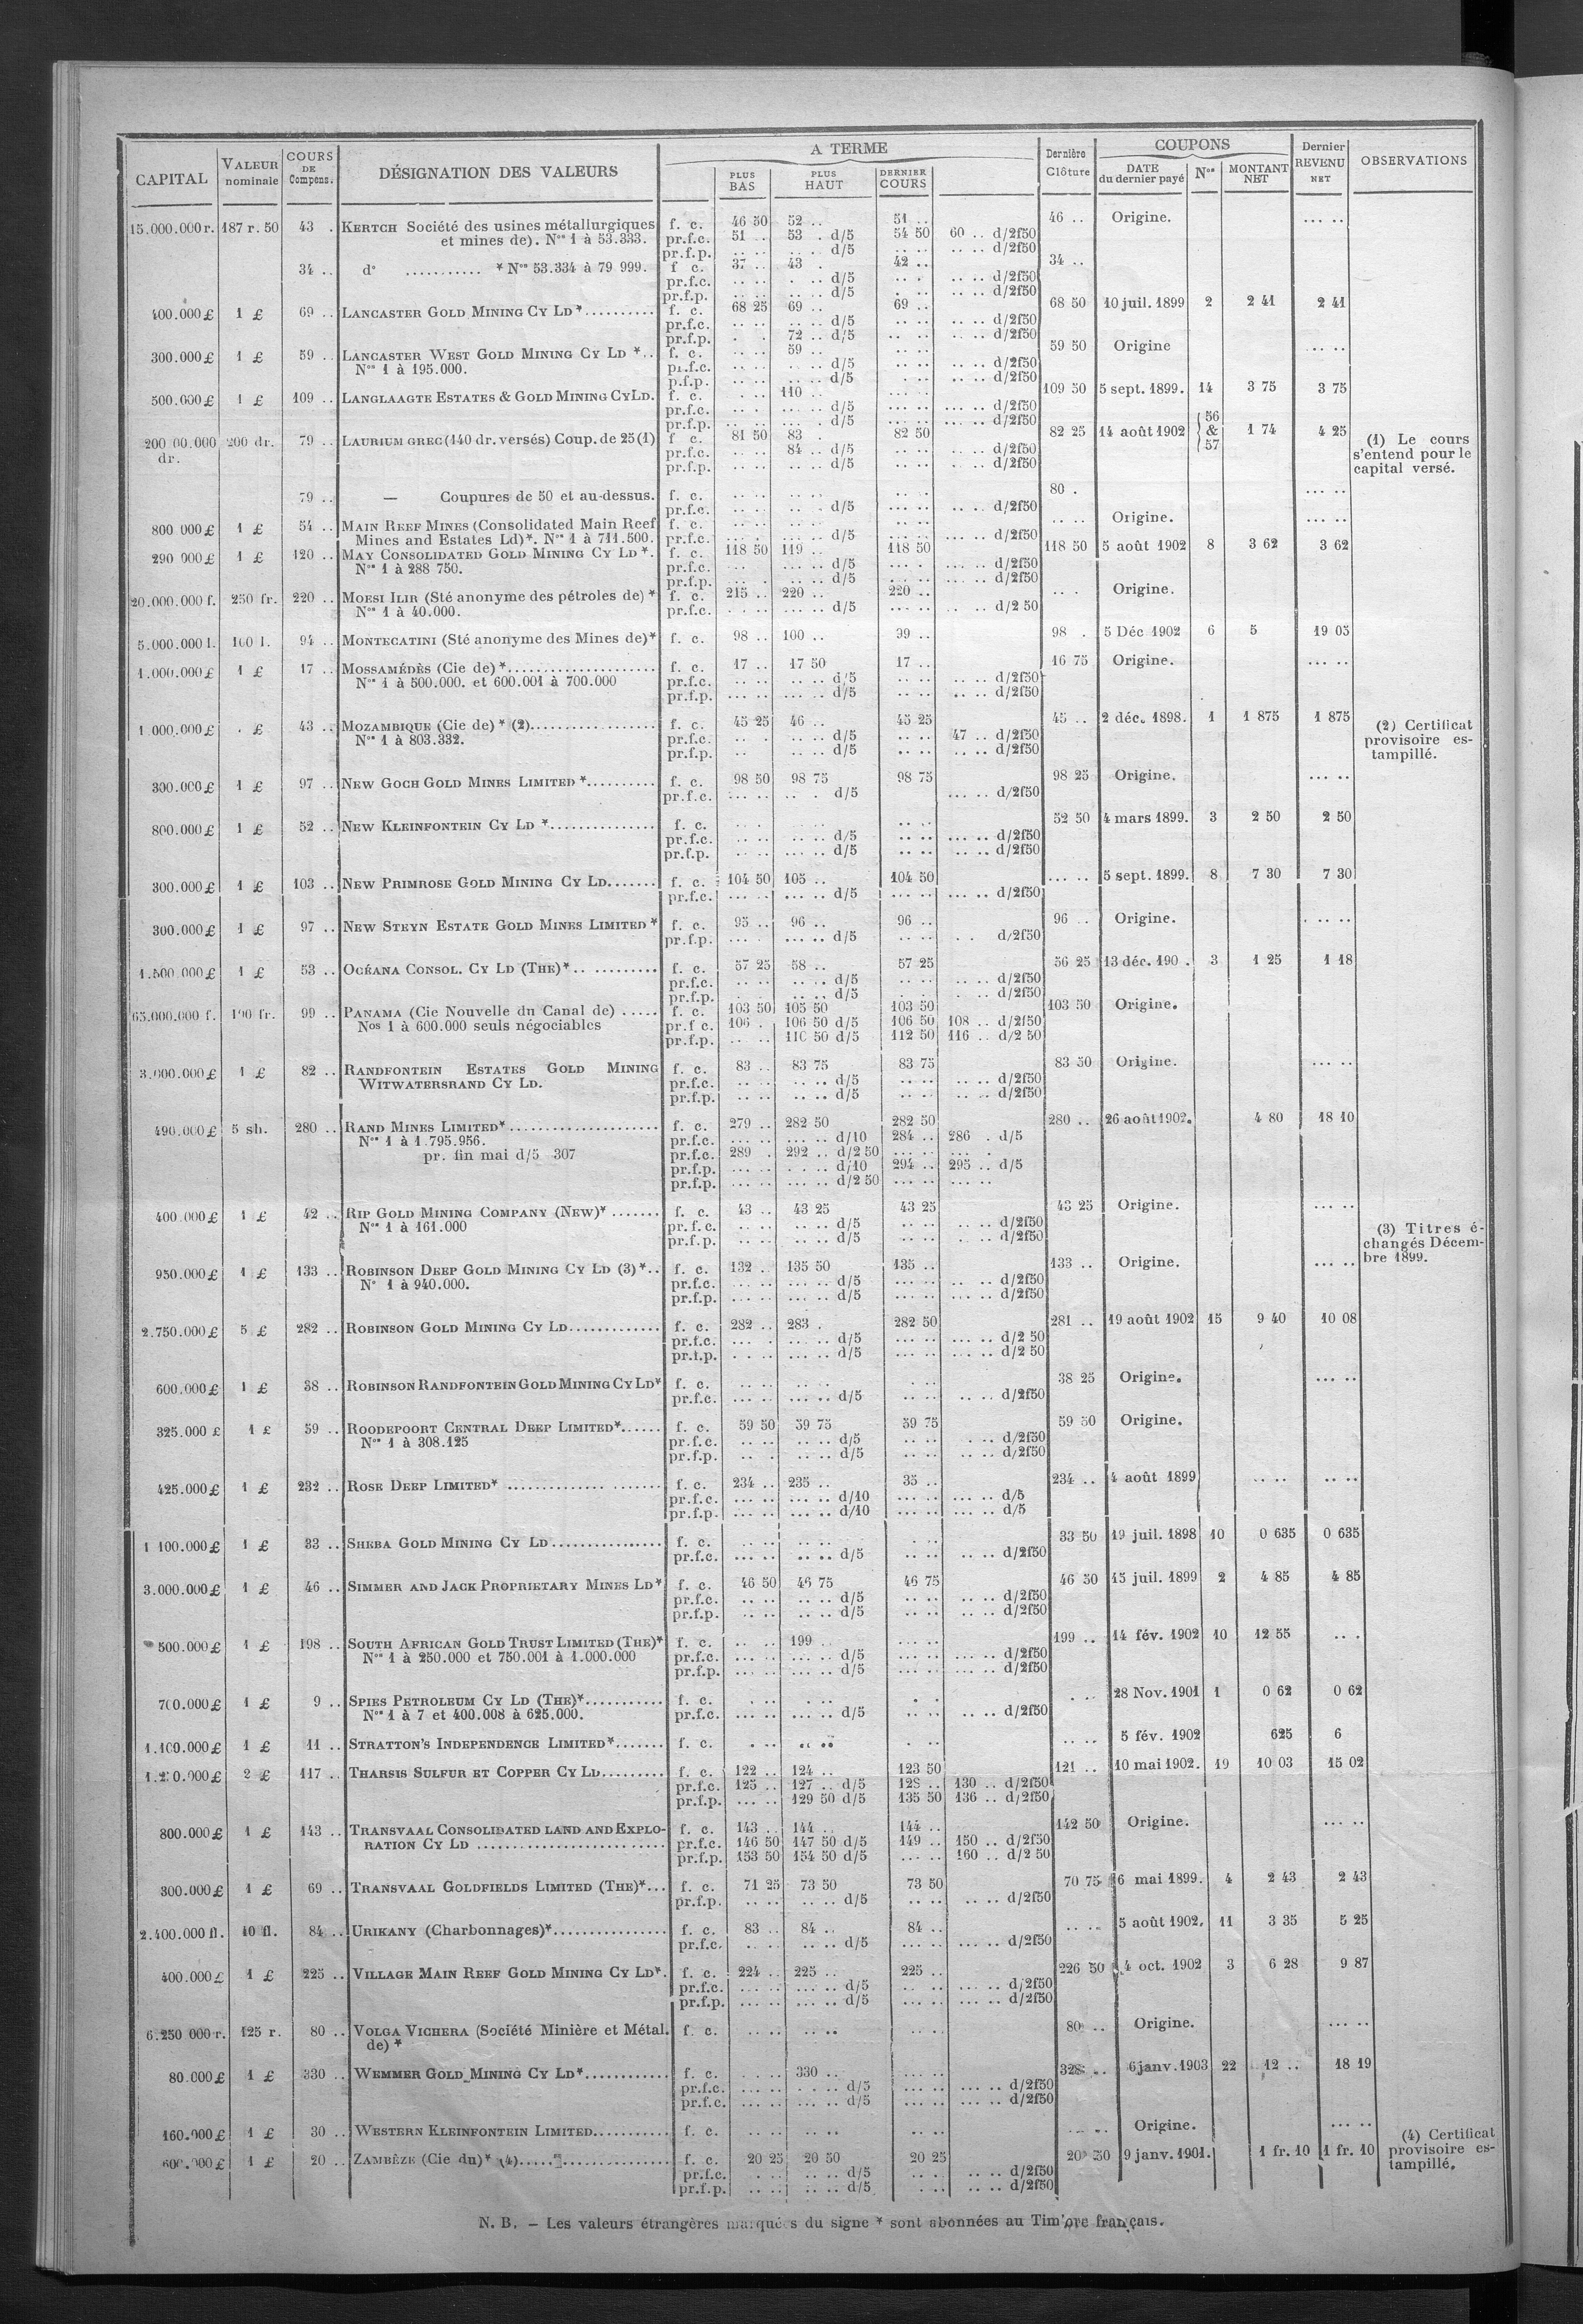 CAPITAL | VALEUR nominale | COURS DE Compens. | DÉSIGNATION DES VALEURS | A TERME | PLUS BAS | PLUS HAUT | DERNIER COURS | Dernière Clôture | COUPONS | DATE du dernier payé | Nos | MONTANT NET | Dernier REVENU NET | OBSERVATIONS
15.000.000 r. 187 r. 50 43 . KERTCH Société des usines métallurgiques f. c. 46 50 52 .. 51 .. 46 .. Origine. ... ..
et mines de). Nos 1 à 53.333. pr.f.c. 51 .. 53 . d/5 54 50 60 .. d/2f50
pr.f.p. .. .. .. .. d/5 .. .. .. .. d/2f50
34 .. d° ........... * Nos 53.334 à 79 999. f c. 37 .. 43 . 42 .. 34 ..
pr.f.c. .. .. . .. d/5 .. . .. .. d/2f50
pr.f.p. .. .. .. .. d/5 .. .. .. .. d/2f50
400.000 £ 1 £ 69 .. LANCASTER GOLD MINING CY LD *.......... f. c. 68 25 69 .. 69 .. 68 50 10 juil. 1899 2 2 41 2 41
pr.f.c. .. .. .. .. d/5 .. .. .. .. d/2f50
pr.f.p. . . 72 .. d/5 .. .. .. .. d/2f50
300.000 £ 1 £ 59 .. LANCASTER WEST GOLD MINING CY LD *.. f. c. .. .. 59 .. .. .. 59 50 Origine ... ..
Nos 1 à 195.000. pr.f.c. .. .. .. .. d/5 .. .. .. .. d/2f50
p.f.p. .. .. .. .. d/5 . .. .. .. d/2f50
500.000 £ 1 £ 109 .. LANGLAAGTE ESTATES & GOLD MINING CYLD. f. c. .. .. 110 .. ... .. 109 50 5 sept. 1899. 14 3 75 3 75
pr.f.c. .. . ... .. d/5 ... .. ... .. d/2f50
pr.f.p. .. .. ... . d/5 ... .. ... .. d/2f50
200 00.000 dr. 200 dr. 79 .. LAURIUM GREC (140 dr. versés) Coup. de 25 (1) f c. 81 50 83 . 82 50 82 25 14 août 1902 56 & 57 1 74 4 25 (1) Le cours s'entend pour le capital versé.
pr.f.c. .. .. 84 .. d/5 .. .. .. .. d/2f50
pr.f.p. .. .. .. .. d/5 .. .. . .. d/2f50
79 .. — Coupures de 50 et au-dessus. f. c. .. .. .. .. .. .. 80 . ... ..
pr.f.c. .. .. .. .. d/5 .. .. .. .. d/2f50
800 000 £ 1 £ 54 .. MAIN REEF MINES (Consolidated Main Reef f. c. .. .. .. .. .. .. .. .. Origine. ... ..
Mines and Estates Ld)*. Nos 1 à 711.500. pr.f.c. ... . ... .. d/5 ... .. ... .. d/2f50
290 000 £ 1 £ 120 .. MAY CONSOLIDATED GOLD MINING CY LD *. f. c. 118 50 119 .. 118 50 118 50 5 août 1902 8 3 62 3 62
Nos 1 à 288 750. pr.f.c. ... ... .. d/5 ... . ... .. d/2f50
pr.f.p. ... . .. .. d/5 ... .. ... .. d/2f50
20.000.000 f. 250 fr. 220 .. MOESI ILIR (Sté anonyme des pétroles de) * f. c. 215 .. 220 .. 220 .. .. . Origine.
Nos 1 à 40.000. pr.f.c. . .. ... .. d/5 ... .. .. .. d/2 50
5.000.000 l. 100 l. 94 .. MONTECATINI (Sté anonyme des Mines de)* f. c. 98 .. 100 .. 99 .. 98 . 5 Déc 1902 6 5 19 05
1.000.000 £ 1 £ 17 .. MOSSAMÉDÈS (Cie de) *..................... f. c. 17 .. 17 50 17 .. 16 75 Origine. ... ..
Nos 1 à 500.000. et 600.001 à 700.000 pr.f.c. .. .. .. .. d/5 .. .. .. .. d/2f50
pr.f.p. ... .. ... .. d/5 .. .. .. .. d/2f50
1 000.000 £ . £ 43 .. MOZAMBIQUE (Cie de) * (2).................. f. c. 45 25 46 .. 45 25 45 .. 2 déc. 1898. 1 1 875 1 875 (2) Certificat provisoire estampillé.
Nos 1 à 803.332. pr.f.c. .. . .. .. d/5 .. . 47 .. d/2f50
pr.f.p. .. .. .. d/5 .. .. .. .. d/2f50
300.000 £ 1 £ 97 .. NEW GOCH GOLD MINES LIMITED *.......... f. c. 98 50 98 75 98 75 98 25 Origine. ... ..
pr.f.c. ... .. .. . d/5 ... .. d/2f50
800.000 £ 1 £ 52 .. NEW KLEINFONTEIN CY LD *............... f. c. .. . .. .. 52 50 4 mars 1899. 3 2 50 2 50
pr.f.c. .. .. ... .. d/5 .. .. ... .. d/2f50
pr.f.p. .. .. ... .. d/5 .. .. .. .. d/2f50
300.000 £ 1 £ 103 .. NEW PRIMROSE GOLD MINING CY LD....... f. c. 104 50 105 .. 104 50 ... .. 5 sept. 1899. 8 7 30 7 30
pr.f.c. ... .. ... .. d/5 ... .. ... .. d/2f50
300.000 £ 1 £ 97 .. NEW STEYN ESTATE GOLD MINES LIMITED * f. c. 95 .. 96 .. 96 .. 96 .. Origine. . .. ..
pr.f.p. ... . ... .. d/5 .. .. .. . d/2f50
1.500.000 £ 1 £ 53 .. OCÉANA CONSOL. CY LD (THE)*.. ......... f. c. 57 25 58 .. 57 25 56 25 13 déc. 190 . 3 1 25 1 18
pr.f.c. .. .. .. .. d/5 .. .. .. .. d/2f50
pr.f.p. . . .. .. d/5 . . .. d/2f50
65.000.000 f. 100 fr. 99 .. PANAMA (Cie Nouvelle du Canal de) ..... f. c. 103 50 105 50 103 50 103 50 Origine.
Nos 1 à 600.000 seuls négociables pr.f c. 106 . 106 50 d/5 106 50 108 .. d/2f50
pr.f.p. .. .. 110 50 d/5 112 50 116 .. d/2 50
3.000.000 £ 1 £ 82 .. RANDFONTEIN ESTATES GOLD MINING f. c. 83 .. 83 75 83 75 83 50 Origine. ... ..
WITWATERSRAND CY LD. pr.f.c. .. .. .. .. d/5 .. .. .. .. d/2f50
pr.f.p. .. .. .. .. d/5 .. .. .. .. d/2f50
490.000 £ 5 sh. 280 .. RAND MINES LIMITED*..................... f. c. 279 .. 282 50 282 50 280 .. 26 août 1902. 4 80 18 10
Nos 1 à 1.795.956. pr.f.c. ... .. ... .. d/10 284 .. 286 . d/5
pr. fin mai d/5 307 pr.f.c. 289 . 292 .. d/2 50 ... .. ... .
pr.f.p. ... .. . .. d/10 294 .. 295 .. d/5
pr.f.p. ... .. ... .. d/2 50 ... .. ... ..
400.000 £ 1 £ 42 .. RIP GOLD MINING COMPANY (NEW)* ....... f. c. 43 .. 43 25 43 25 43 25 Origine. ... ..
Nos 1 à 161.000 pr.f.c. .. .. .. .. d/5 .. .. .. .. d/2f50
pr.f.p. .. .. .. .. d/5 .. .. .. .. d/2f50
(3) Titres échangés Décembre 1899.
950.000 £ 1 £ 133 .. ROBINSON DEEP GOLD MINING CY LD (3)*.. f. c. 132 .. 135 50 135 .. 133 .. Origine. ... ..
N° 1 à 940.000. pr.f.c. ... .. ... .. d/5 ... .. .. .. d/2f50
pr.f.p. ... .. ... .. d/5 ... .. ... .. d/2f50
2.750.000 £ 5 £ 282 .. ROBINSON GOLD MINING CY LD............. f. c. 282 .. 283 . 282 50 281 .. 19 août 1902 15 9 40 10 08
pr.f.c. ... . ... .. d/5 ... .. ... .. d/2 50
pr.f.p. . .. ... .. d/5 ... .. ... .. d/2 50
600.000 £ 1 £ 38 .. ROBINSON RANDFONTEIN GOLD MINING CY LD* f. c. .. .. .. . . .. 38 25 Origine. ... ..
pr.f.c. ... .. ... .. d/5 .. .. .. .. d/2f50
325.000 £ 1 £ 59 .. ROODEPOORT CENTRAL DEEP LIMITED*...... f. c. 59 50 59 75 59 75 59 50 Origine.
Nos 1 à 308.125 pr.f.c. .. .. .. .. d/5 .. .. . .. d/2f50
pr.f.p. .. . .. .. d/5 .. .. .. .. d/2f50
425.000 £ 1 £ 232 .. ROSE DEEP LIMITED* .............. ....... f. c. 234 .. 235 .. 35 .. 234 .. 4 août 1899 .. .. .. ..
pr.f.c. ... .. ... .. d/10 ... .. ... .. d/5
pr.f.p. ... .. ... .. d/10 ... .. ... .. d/5
1 100.000 £ 1 £ 33 .. SHEBA GOLD MINING CY LD................ f. c. .. .. .. .. . .. 33 50 19 juil. 1898 10 0 635 0 635
pr.f.c. ... .. .. .. d/5 .. .. .. .. d/2f50
3.000.000 £ 1 £ 46 .. SIMMER AND JACK PROPRIETARY MINES LD* f. c. 46 50 46 75 46 75 46 50 15 juil. 1899 2 4 85 4 85
pr.f.c. .. .. .. .. d/5 .. .. .. .. d/2f50
pr.f.p. .. .. .. .. d/5 .. .. .. .. d/2f50
500.000 £ 1 £ 198 .. SOUTH AFRICAN GOLD TRUST LIMITED (THE)* f. c. .. .. 199 .. ... .. 199 .. 14 fév. 1902 10 12 55 .. .
Nos 1 à 250.000 et 750.001 à 1.000.000 pr.f.c. ... .. ... .. d/5 ... .. ... .. d/2f50
pr.f.p. ... .. ... .. d/5 ... .. ... .. d/2f50
700.000 £ 1 £ 9 .. SPIES PETROLEUM CY LD (THE)*........... f. c. . .. . .. . . . .. 28 Nov. 1901 1 0 62 0 62
Nos 1 à 7 et 400.008 à 625.000. pr.f.c. ... .. ... .. d/5 .. .. .. .. d/2f50
1.100.000 £ 1 £ 11 .. STRATTON'S INDEPENDENCE LIMITED*....... f. c. . .. .. .. . .. .. .. 5 fév. 1902 625 6
1.2 0.000 £ 2 £ 117 .. THARSIS SULFUR ET COPPER CY LD......... f. c. 122 .. 124 .. 123 50 121 .. 10 mai 1902. 19 10 03 15 02
pr.f.c. 125 .. 127 .. d/5 128 .. 130 .. d/2f50
pr.f.p. ... .. 129 50 d/5 135 50 136 .. d/2f50
800.000 £ 1 £ 143 .. TRANSVAAL CONSOLIDATED LAND AND EXPLO- f. c. 143 .. 144 .. 144 .. 142 50 Origine. ... ..
RATION CY LD ........................... pr.f.c. 146 50 147 50 d/5 149 .. 150 .. d/2f50
pr.f.p. 153 50 154 50 d/5 ... .. 160 .. d/2 50
300.000 £ 1 £ 69 .. TRANSVAAL GOLDFIELDS LIMITED (THE)*... f. c. 71 25 73 50 73 50 70 75 6 mai 1899. 4 2 43 2 43
pr.f.p. .. .. .. .. d/5 .. .. .. .. d/2f50
2.400.000 fl. 10 fl. 84 .. URIKANY (Charbonnages)*................ f. c. 83 .. 84 .. 84 .. .. .. 5 août 1902. 11 3 35 5 25
pr.f.c. .. . .. .. d/5 ... .. ... .. d/2f50
400.000 £ 1 £ 225 .. VILLAGE MAIN REEF GOLD MINING CY LD*. f. c. 224 .. 225 .. 225 .. 226 50 4 oct. 1902 3 6 28 9 87
pr.f.c. ... .. ... .. d/5 ... .. ... .. d/2f50
pr.f.p. ... .. ... .. d/5 ... .. ... .. d/2f50
6.250 000 r. 125 r. 80 .. VOLGA VICHERA (Société Minière et Métal. f. c. .. .. .. .. .. .. 80 .. Origine. ... ..
de) *
80.000 £ 1 £ 330 .. WEMMER GOLD MINING CY LD*............ f. c. . .. 330 .. ... .. 328 .. 6 janv. 1903 22 12 .. 18 19
pr.f.c. ... .. . .. d/5 ... .. ... .. d/2f50
pr.f.c. ... .. ... .. d/5 ... .. ... .. d/2f50
160.000 £ 1 £ 30 .. WESTERN KLEINFONTEIN LIMITED........... f. c. .. .. .. .. .. .. .. .. Origine. ... ..
600.000 £ 1 £ 20 .. ZAMBÈZE (Cie du)* (4)..................... f. c. 20 25 20 50 20 25 20 50 9 janv. 1901. 1 fr. 10 1 fr. 10 (4) Certificat provisoire estampillé.
pr.f.c. . .. .. .. d/5 . .. .. .. d/2f50
pr.f.p. .. .. .. .. d/5 . .. .. .. d/2f50
N. B. – Les valeurs étrangères marquées du signe * sont abonnées au Timbre français.